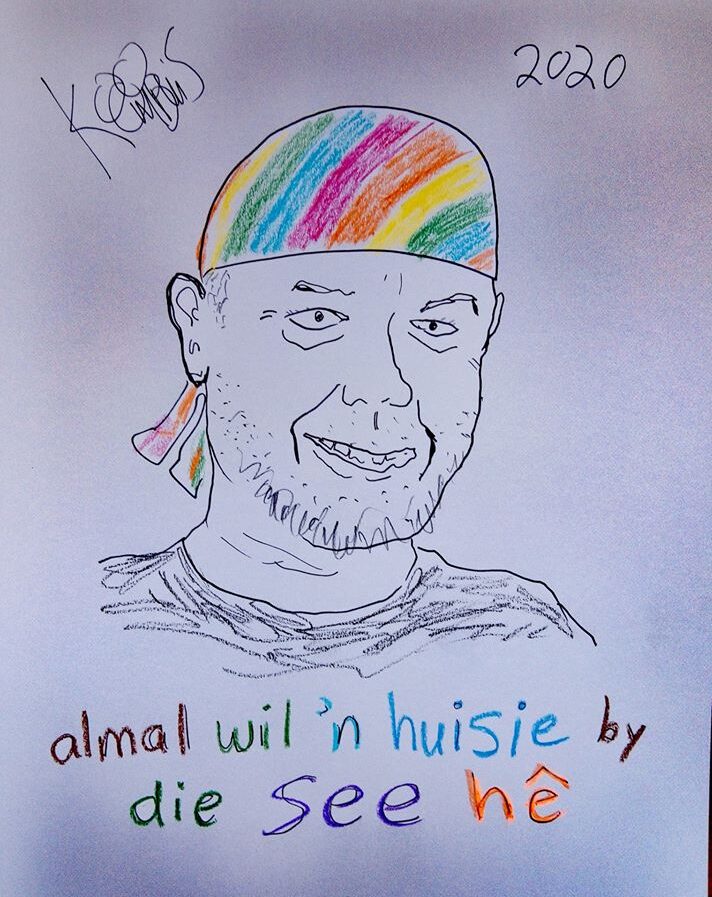 2020
almal wil 'n huisie by
die see hê